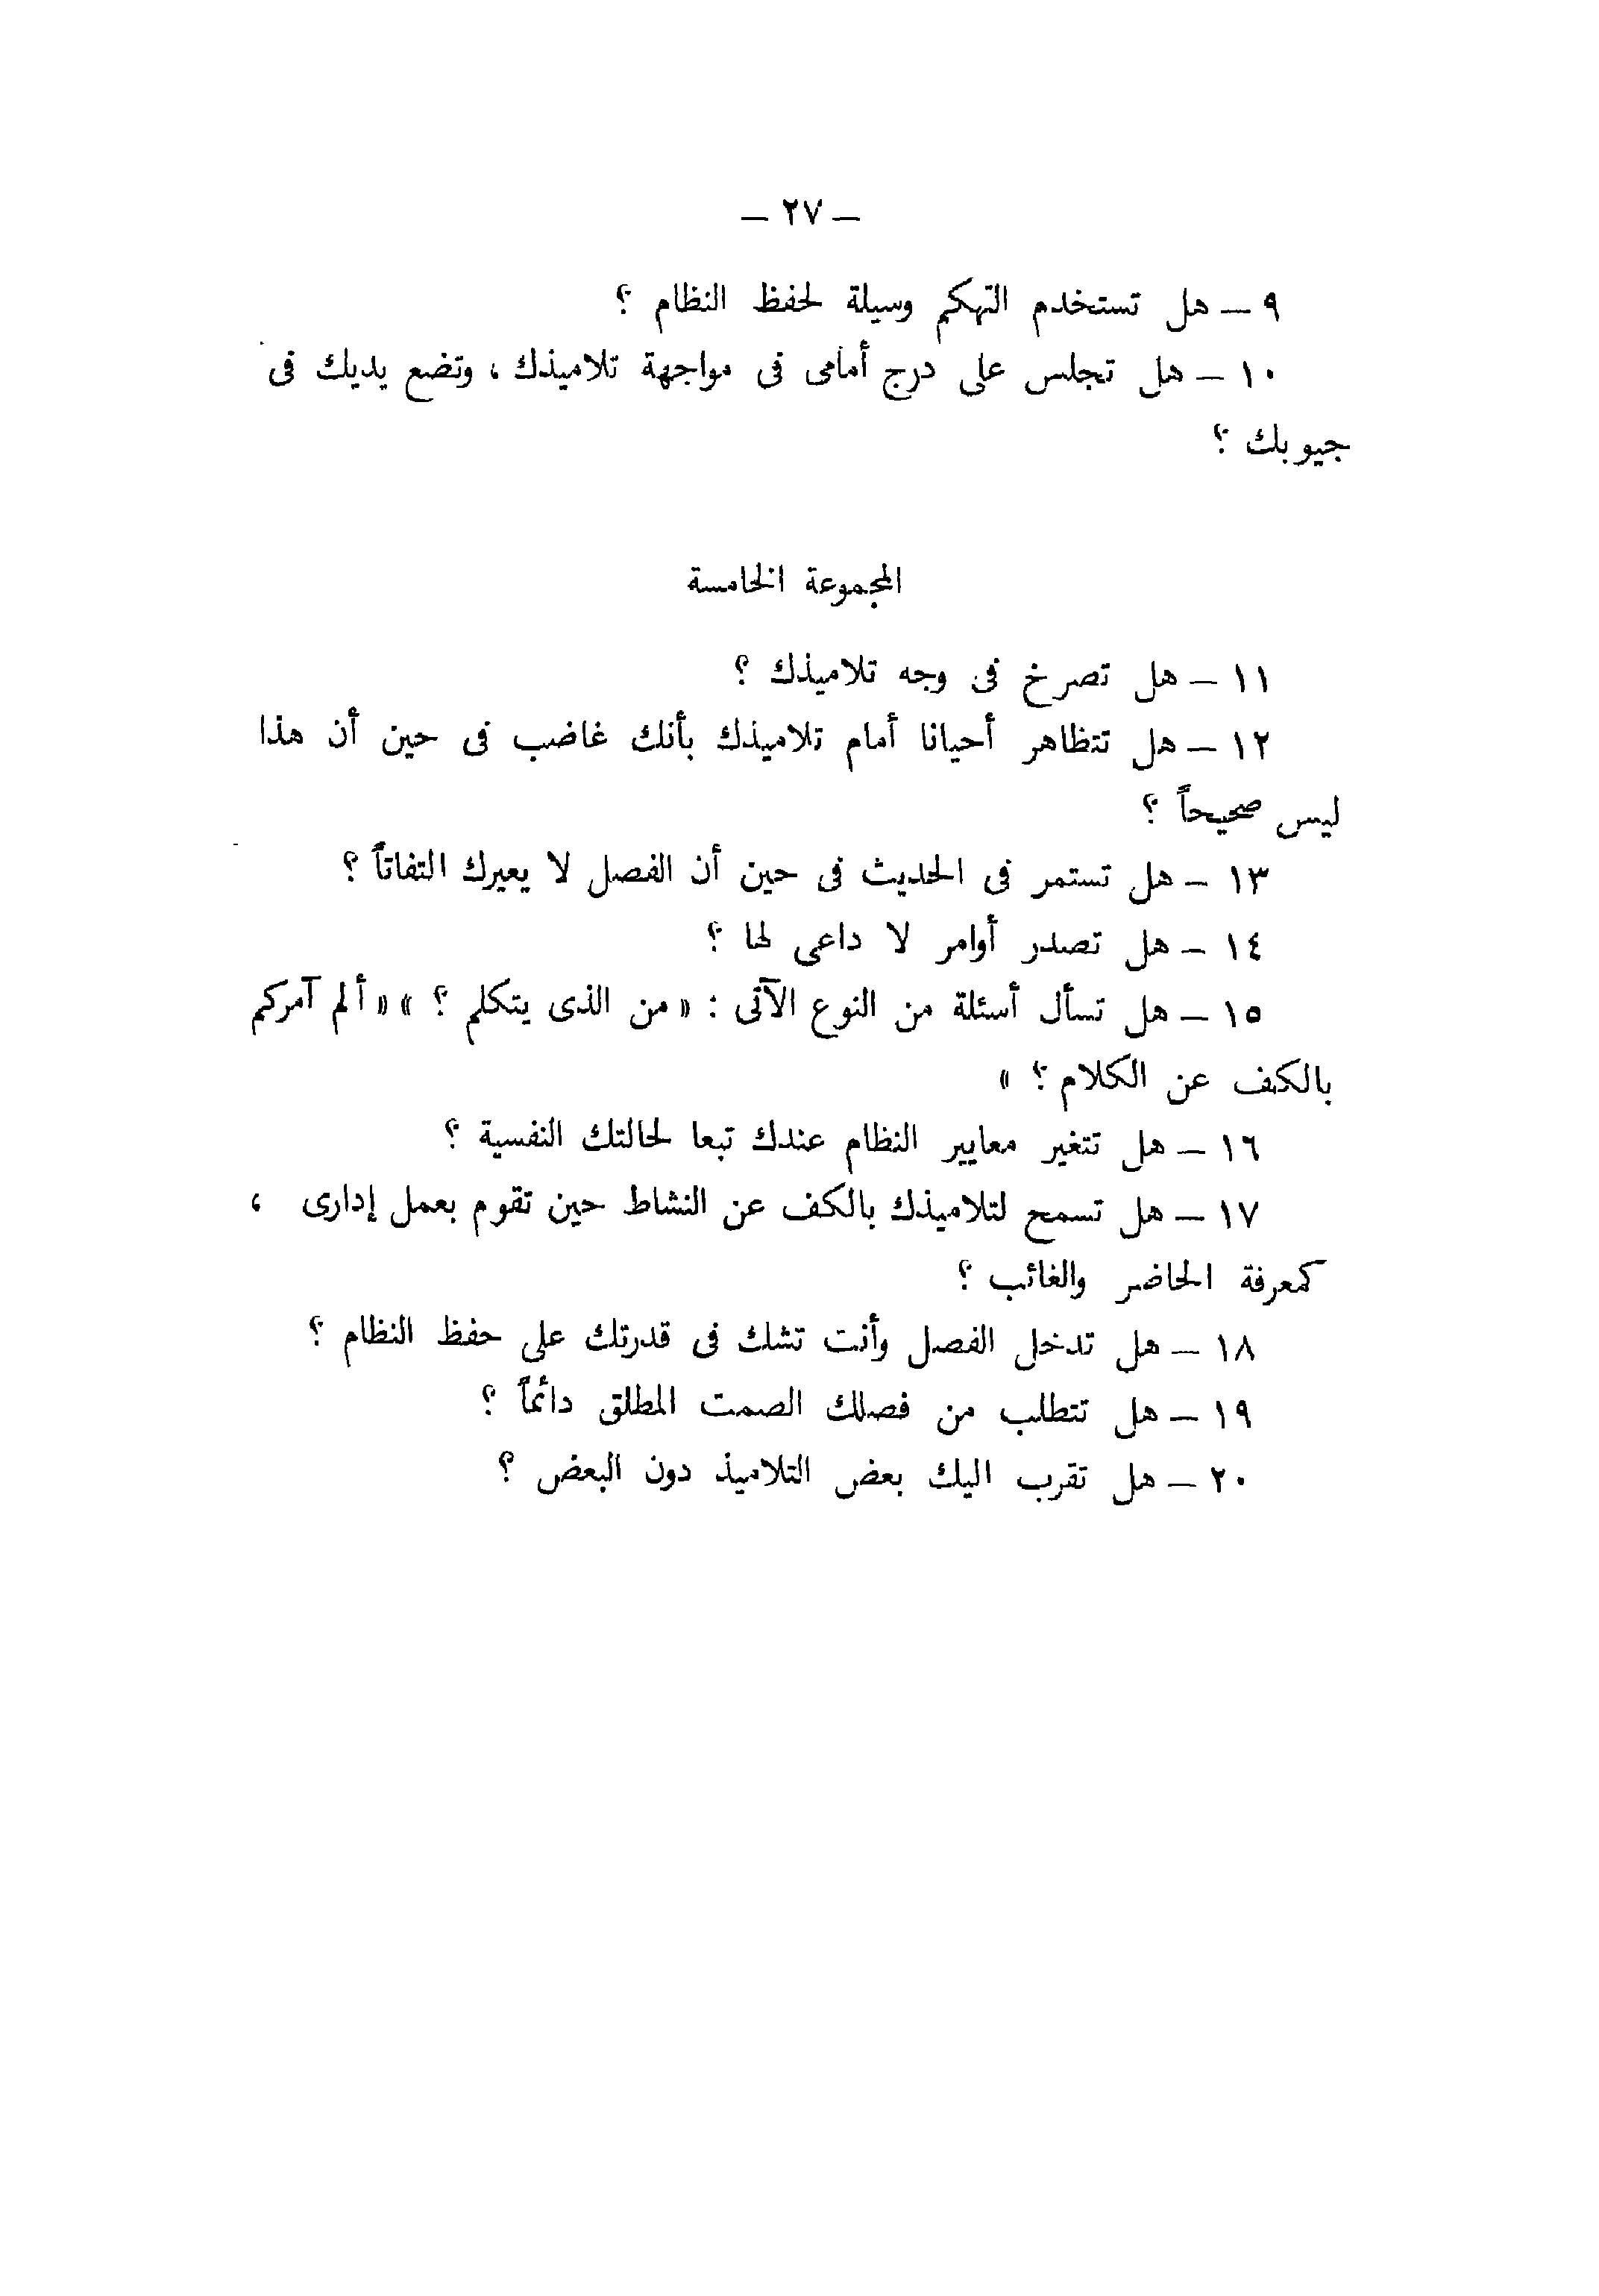 — ٢٧ —
٩ — هل تستخدم التهكم وسيلة لحفظ النظام ؟
١٠ — هل تجلس على درج أمامى فى مواجهة تلاميذك ، وتضع يديك فى
جيوبك ؟
المجموعة الخامسة
١١ — هل تصرخ فى وجه تلاميذك ؟
١٢ — هل تتظاهر أحيانا أمام تلاميذك بأنك غاضب فى حين أن هذا
ليس صحيحاً ؟
١٣ — هل تستمر فى الحديث فى حين أن الفصل لا يعيرك التفاتاً ؟
١٤ — هل تصدر أوامر لا داعى لها ؟
١٥ — هل تسأل أسئلة من النوع الآتى : « من الذى يتكلم ؟ » « ألم آمركم
بالكف عن الكلام ؟ »
١٦ — هل تتغير معايير النظام عندك تبعا لحالتك النفسية ؟
١٧ — هل تسمح لتلاميذك بالكف عن النشاط حين تقوم بعمل إدارى ،
كمعرفة الحاضر والغائب ؟
١٨ — هل تدخل الفصل وأنت تشك فى قدرتك على حفظ النظام ؟
١٩ — هل تتطلب من فصلك الصمت المطلق دائماً ؟
٢٠ — هل تقرب اليك بعض التلاميذ دون البعض ؟